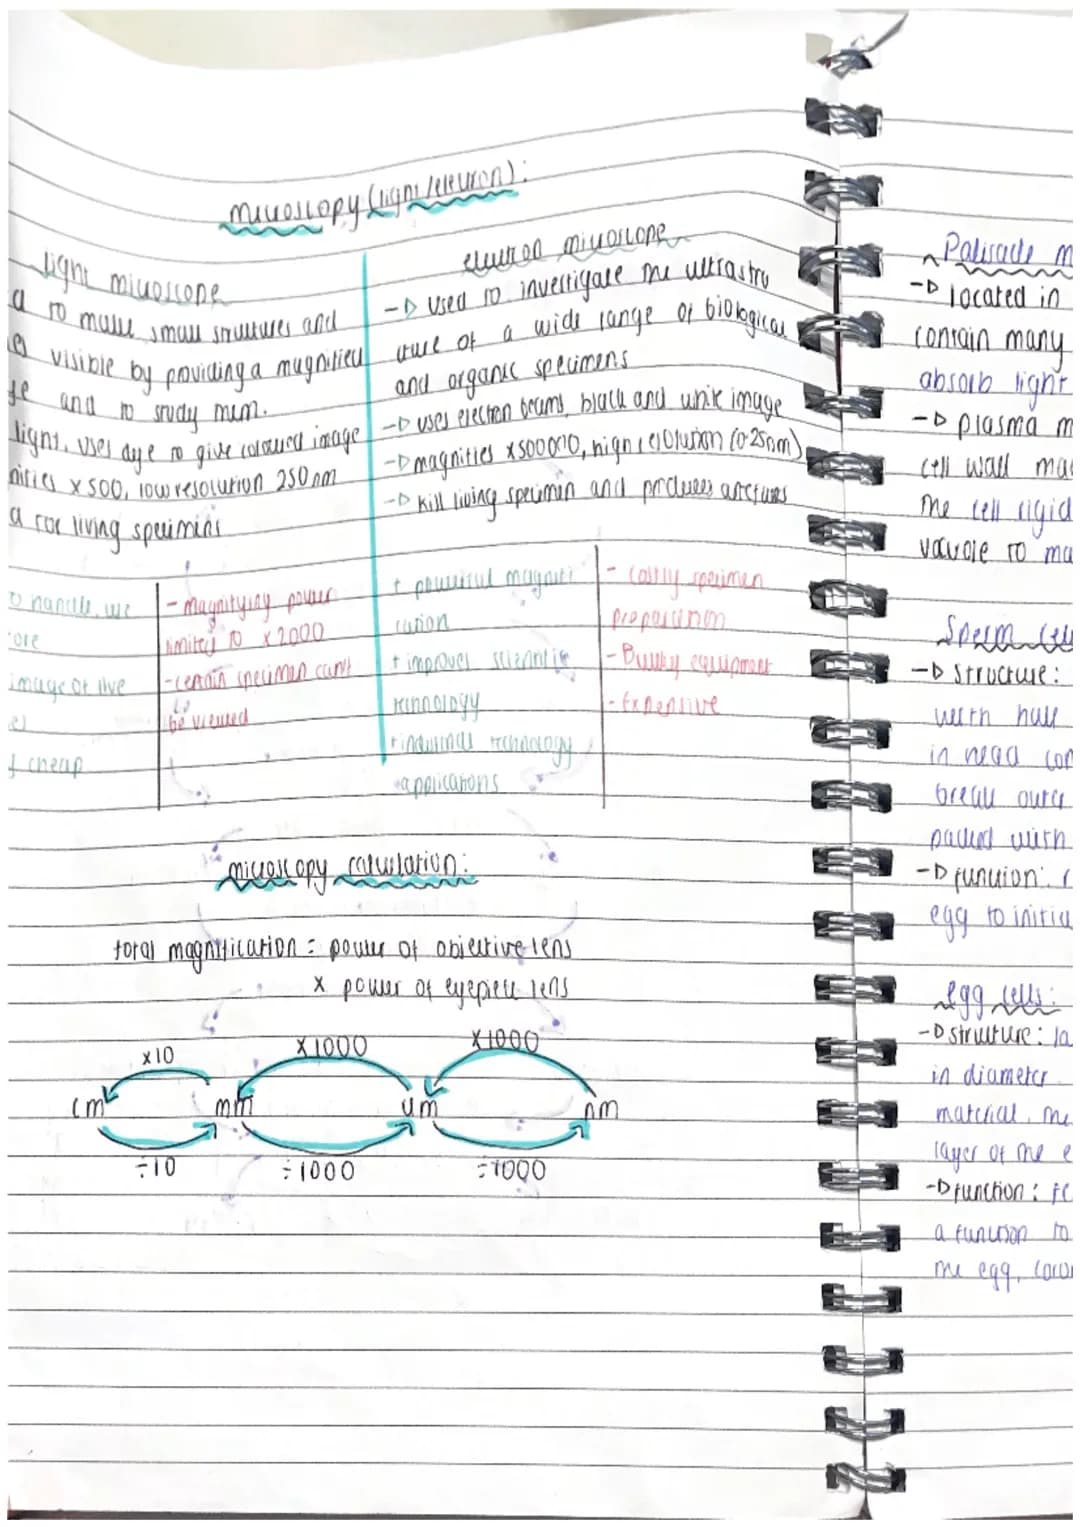 microscopy (light/electron):
light microscope
to make small structures and
visible by providing a magnified
and to study them.
light, uses dye to give coloured image
x 500, low resolution 250nm
for living specimins
electron microscope
-> used to investigate the ultrastru
cture of a wide range of biological
and organic specimens
-> uses electron beams, black and white image
-> magnifies x500000, high resolution (0.25nm)
-> kill living specimen and produces
o handle, use
image of live
cheap
- magnifying power
limited to x2000
- certain specimen cant
be viewed
+ powerful magnifi
cation
+ improves scientific
technology
+ industrial technology
applications
- costly specimen
preparation
- Bulky equipment
- Expensive
microscopy calculation:
total magnification = power of objective lens
x power of eyepiece lens
x10 x1000 x1000
cm mm um nm
÷10 ÷1000 ÷1000
Palisade m
-> located in
contain many
absorb light
-> plasma m
cell wall ma
the cell rigid
vacuole to ma
Sperm cel
-> structure:
with
in head con
break outer
packed with
-> function:
egg to initia
egg cells:
-> structure: la
in diameter
material. the
layer of the e
-> function: fe
a function to
the egg,